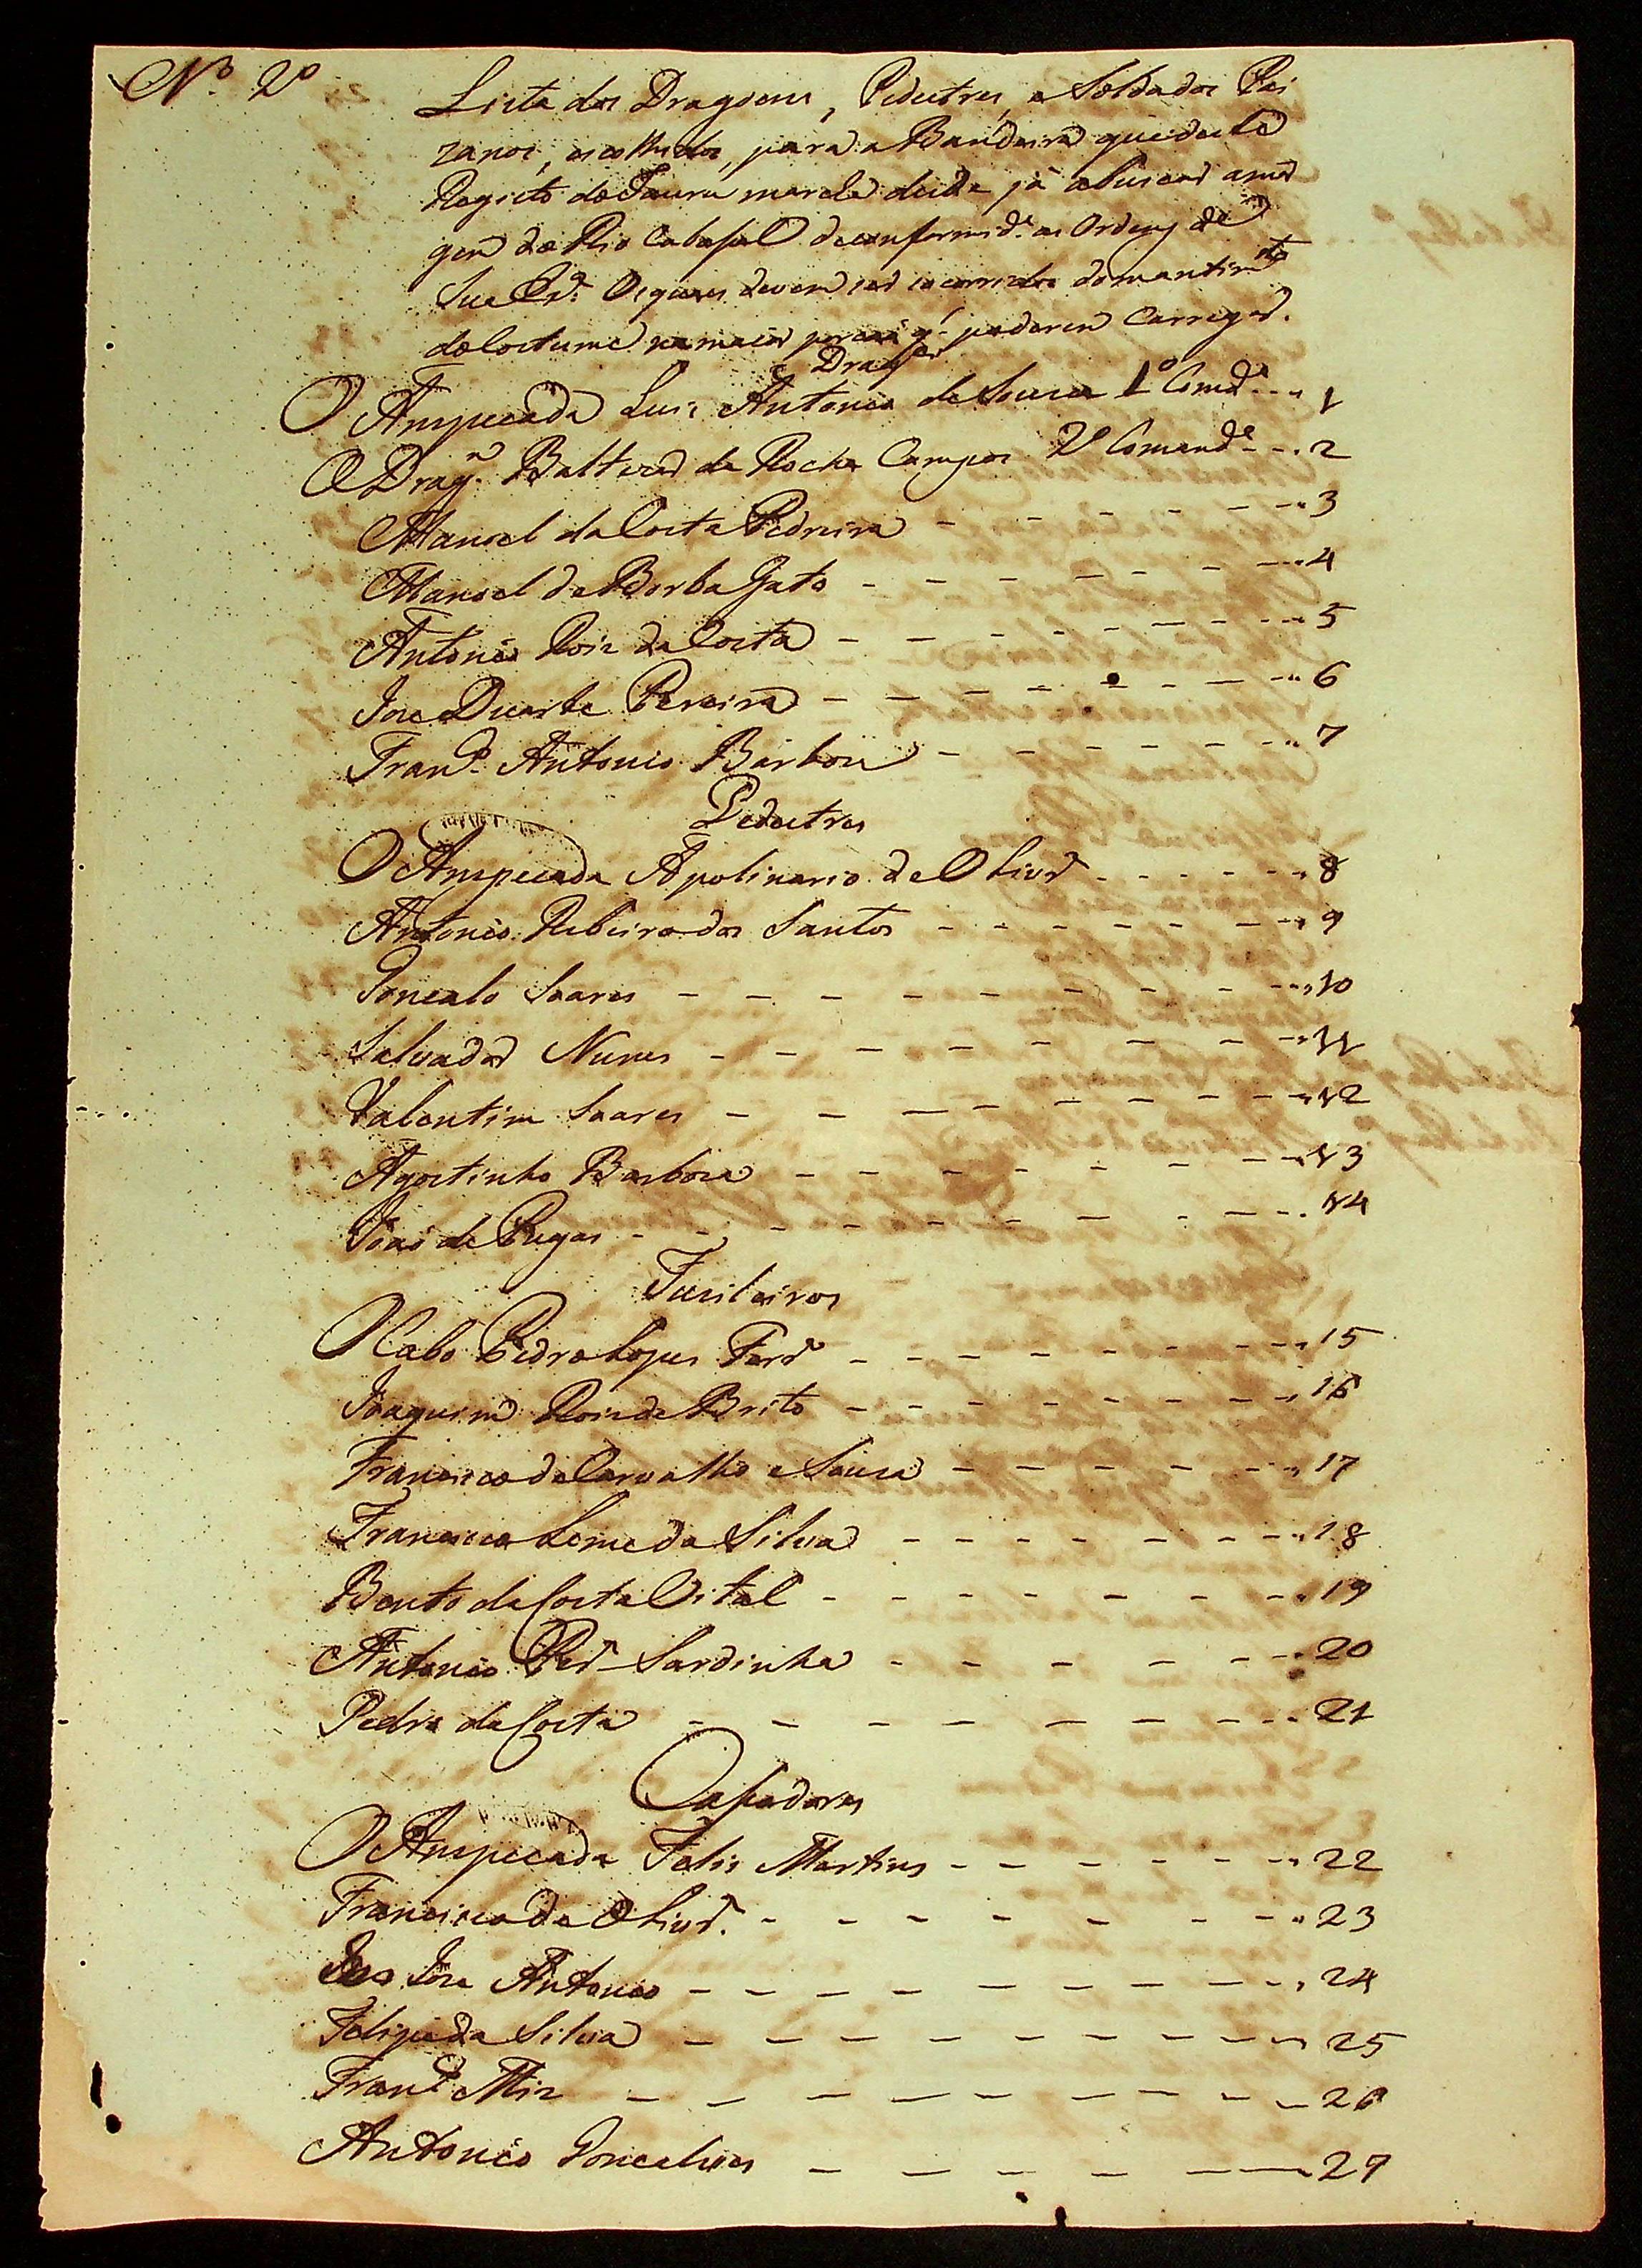 N.º 2º
Lista dos Dragoens, Pedestres, e Soldados Pai
zanos, escolhidos, para a Bandeira que deste
Registo do Jauru marcha desde já abuscar amar
gem do Rio Cabasal deconformid.e as Ordens de
Sua Ex.ª Osquaes devem ser socorridos demantim.to
docostume namaior porçaõ q.' poderem Carregar.
Drag.es
O Anspecada Luiz Antonio de Souza 1º Comd.e 1
O Drag.m Baltezar da Rocha Campos 2º Comand.e 2
Manoel da Costa Pedreira 3
Manoel de Borba Gato 4
Antonio Roiz da Costa 5
Joze Duarte Pereira 6
Fran.co Antonio Barboza 7
Pedestres
O Anspecada Apolinario de Olivr.ª 8
Antonio Ribeiro dos Santos 9
Goncalo Soares 10
Salvador Nunes 11
Valentim Soares 12
Agostinho Barboza 13
Joaõ de Pugas 14
Fuzileiros
O Cabo Pedro Lopes Ferr.ª 15
Joaquim Roiz de Brito 16
Francisco de Carvalho e Souza 17
Francisco Leme da Silva 18
Bento da Costa Vital 19
Antonio Per.ª Sardinha 20
Pedro da Costa 21
Casadores
O Anspecada Felis Martins 22
Francisco de Olivr.ª 23
Joze Antonio 24
Felipe da Silva 25
Fran.co Miz 26
Antonio Goncalves 27